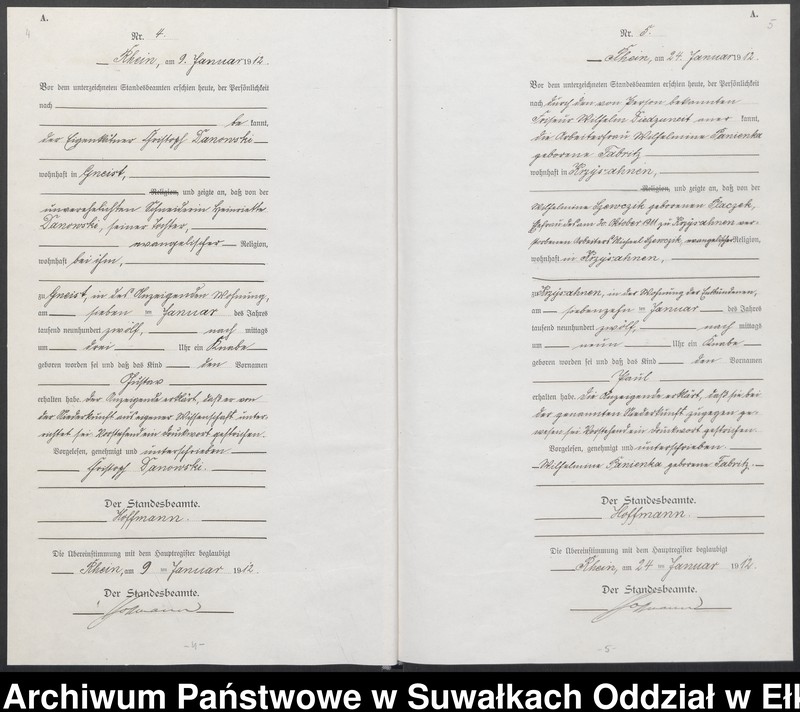 4
A.
Nr. 4.
Rhein, am 9. Januar 1912.
Vor dem unterzeichneten Standesbeamten erschien heute, der Persönlichkeit
nach
be kannt,
der Eigenkätner Christoph Danowski
wohnhaft in Gneist,
Religion, und zeigte an, daß von der
unverehelichten Schneiderin Heinriette
Danowski, seiner Tochter,
evangelischer Religion,
wohnhaft bei ihm,
zu Gneist, in des Anzeigenden Wohnung,
am sieben ten Januar des Jahres
tausend neunhundert zwölf, nach mittags
um drei Uhr ein Knabe
geboren worden sei und daß das Kind den Vornamen
Gustav
erhalten habe. Der Anzeigende erklärt, daß er von
der Niederkunft aus eigener Wissenschaft unter-
richtet sei. Vorstehend ein Druckwort gestrichen.
Vorgelesen, genehmigt und unterschrieben
Christoph Danowski.
Der Standesbeamte.
Hoffmann.
Die Übereinstimmung mit dem Hauptregister beglaubigt
Rhein, am 9 ten Januar 1912.
Der Standesbeamte.
Hoffmann
-4-
A.
5
Nr. 5.
Rhein, am 24. Januar 1912.
Vor dem unterzeichneten Standesbeamten erschien heute, der Persönlichkeit
nach durch den von Person bekannten
Friseur Wilhelm aner kannt,
die Arbeiterfrau Wilhelmine Panienka
geborene Fabritz
wohnhaft in Krzysahnen,
Religion, und zeigte an, daß von der
Wilhelmine geborenen Baczek,
Ehefrau des am 30. Oktober 1911 zu Krzysahnen ver-
storbenen Arbeiters Michael evangelischer Religion,
wohnhaft in Krzysahnen,
zu Krzysahnen, in der Wohnung der Entbundenen,
am siebenzehn ten Januar des Jahres
tausend neunhundert zwölf, nach mittags
um neun Uhr ein Knabe
geboren worden sei und daß das Kind den Vornamen
Paul
erhalten habe. Die Anzeigende erklärt, daß sie bei
der genannten Niederkunft zugegen ge-
wesen sei. Vorstehend ein Druckwort gestrichen
Vorgelesen, genehmigt und unterschrieben.
Wilhelmine Panienka geborene Fabritz.
Der Standesbeamte.
Hoffmann.
Die Übereinstimmung mit dem Hauptregister beglaubigt
Rhein, am 24 ten Januar 1912.
Der Standesbeamte.
Hoffmann
-5-
Archiwum Państwowe w Suwałkach Oddział w Ełk